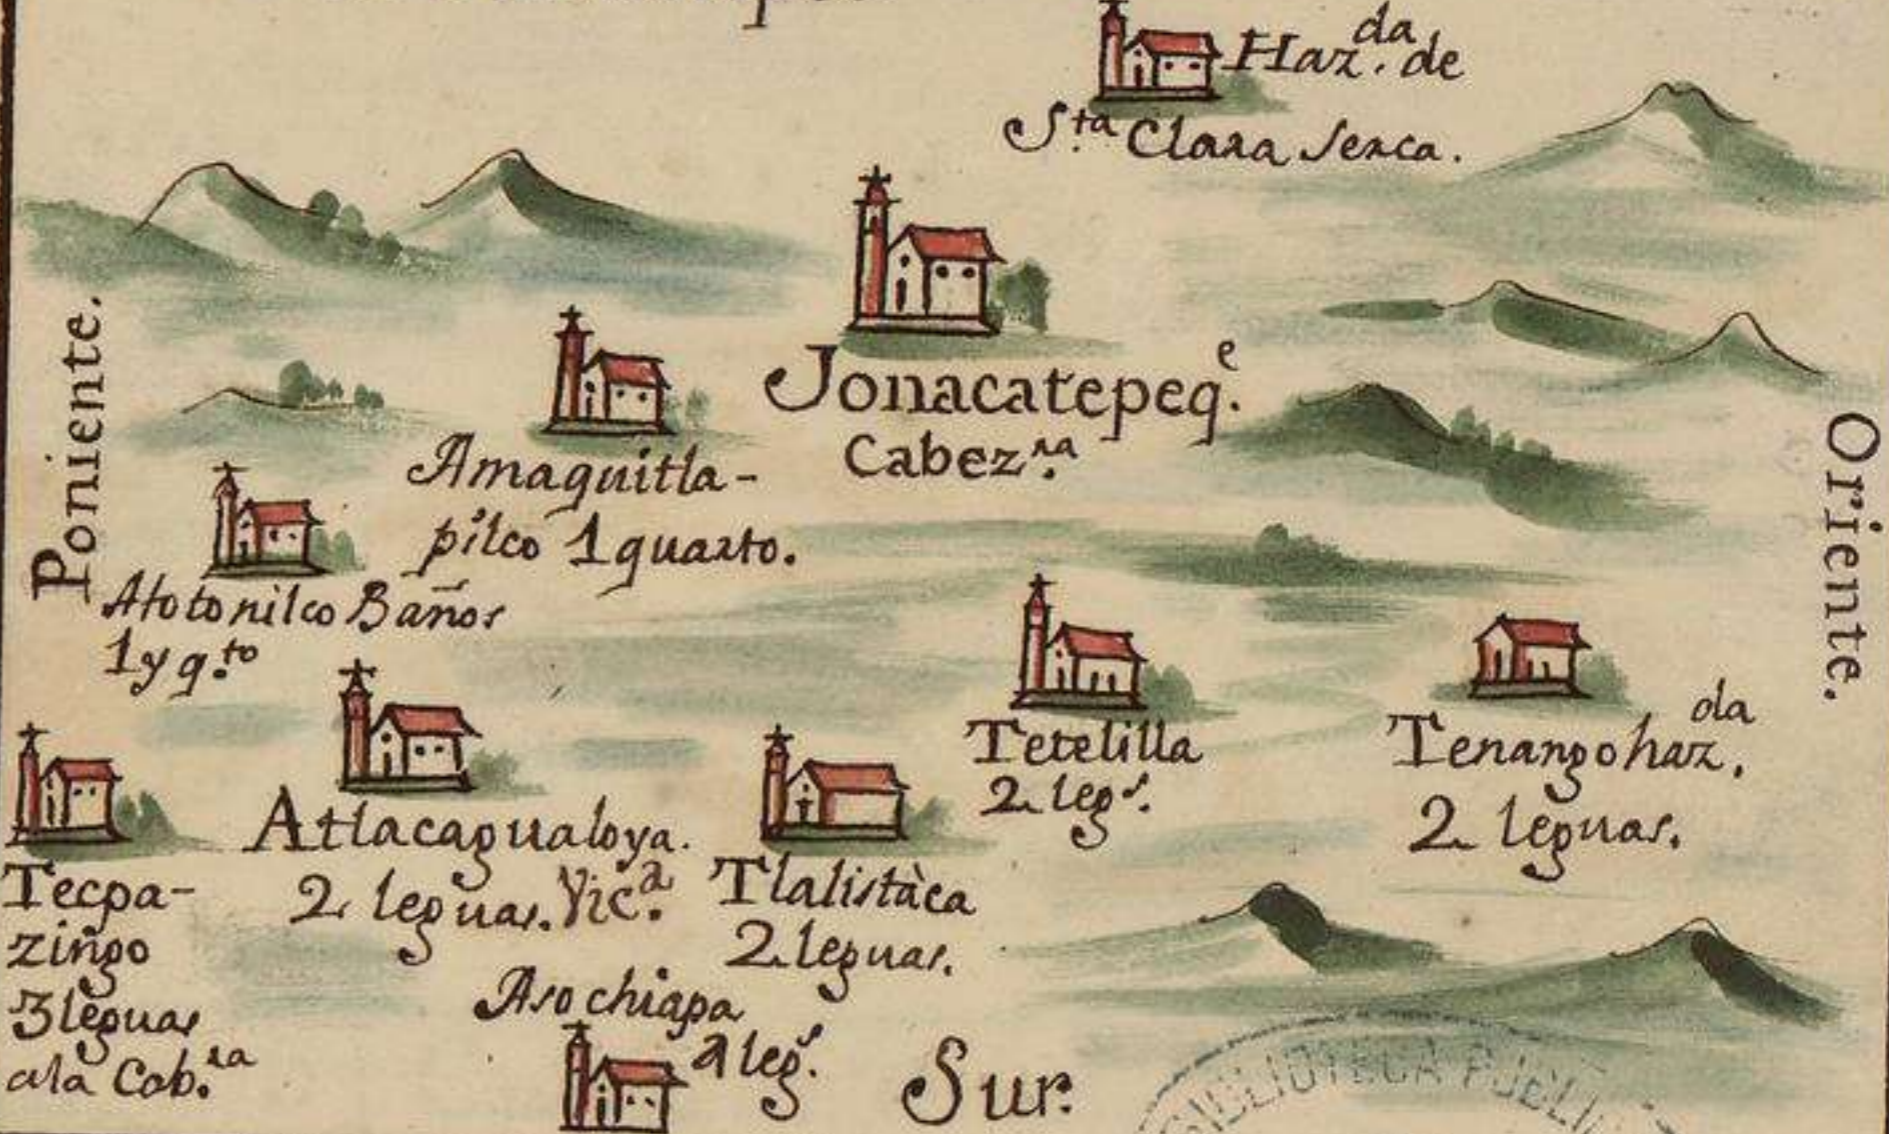 Haz.da de
S.ta Clara Serca.
Poniente.
Jonacatepeq.e
Cabez.ra
Amaquitla-
pilco 1 quarto.
Oriente.
Atotonilco Baños
1 y q.to
Tetelilla
2 leg.s
Tenango haz.da
2 leguas.
Atlacagualoya.
2 leguas. Vic.a
Tlalistàca
2 leguas.
Tecpa-
zingo
3 leguas
ala Cab.ra
Asochiapa
leg.s
Sur.
BIBLIOTECA